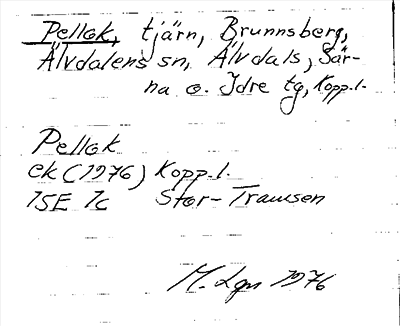 Pellok, tjärn, Brunnsberg,
Älvdalens sn, Älvdals, Sär-
na o. Idre tg, Kopp.l.
Pellok
ek (1976) Kopp.l.
15E 7c Stor-Tramsen
M. Lgn 1976